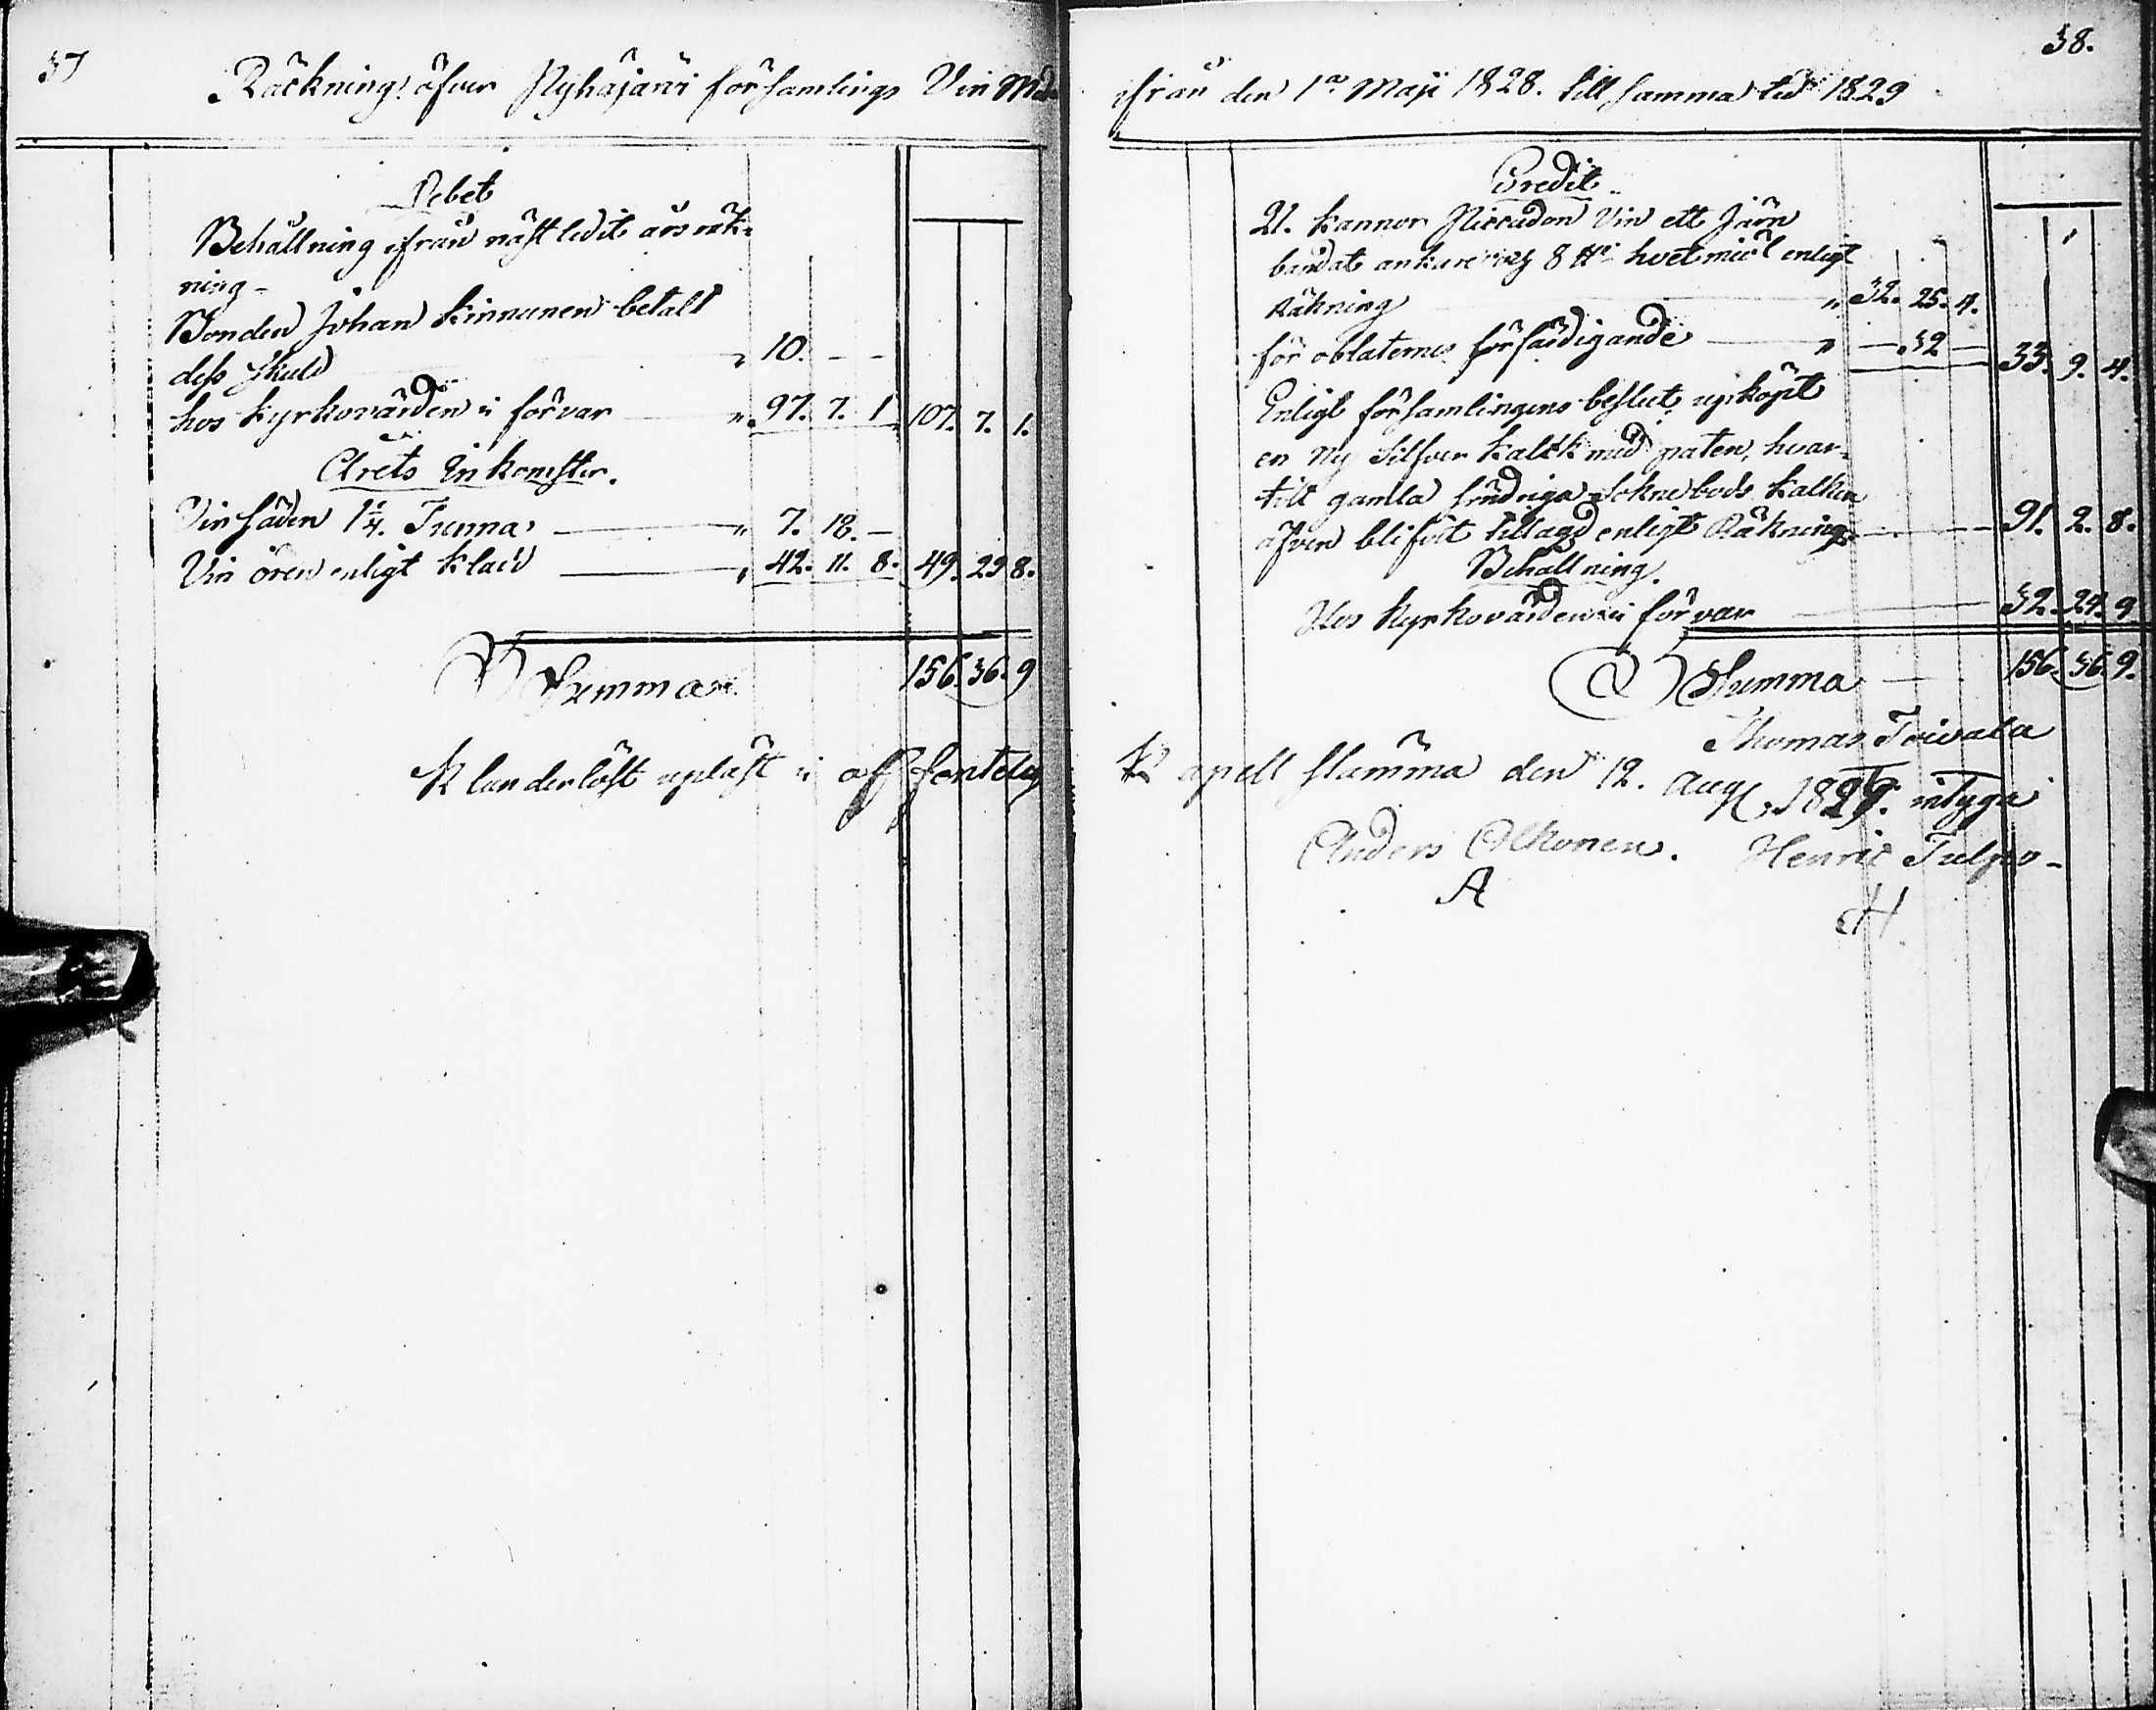 37
Räckning öfver Pyhäjärvi församlings Vin
Debet
Behållning ifrån näst ledit års räk-
ning -
Bonden Johan Kinnunen betalt
dess skuld " 10. - -
hos Kyrkovärden i förvar " 97. 7. 1 107. 7. 1.
Årets Inkomster.
Vin säden 1 1/4. Tunna " 7. 18. -
Vin ören enligt Klad " 42. 11. 8. 49. 29 8.
Summa 156. 36. 9
Klanderlöst upläst i offentelig
38.
ifrån den 1a Maji 1828. till samma tid 1829
Credit
21. Kannor Piccadon Vin ett järn
bandat ankare och 8 ℔ hvetmiöl enligt
Räkning " 32. 25. 4.
för oblaternes förfärdigande " - 32 - 33. 9. 4.
Enligt församlingens beslut upköpt
en Ny Silfver Kalck med paten, hvar-
till gamla Soknebods Kalken
äfven blifvit tillagd enligt Räkning 91. 2. 8.
Behållning
Hos Kyrkovärden i förvar 32. 24. 9
Summa 156. 36. 9.
Thomas Toivala
Kapell stämma den 12. Aug. 1829. intyga
Anders Olkonen. Henric Tulpo-
A H